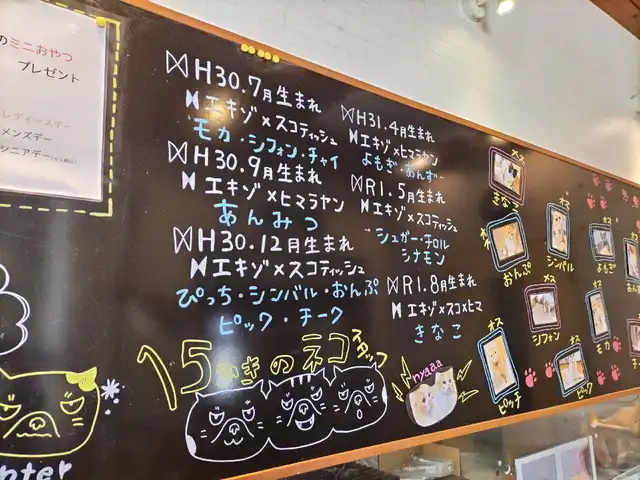 のミニおやつ
プレゼント
レディースデー
メンズデー
シニアデー
H30.7月生まれ
エキゾ×スコティッシュ
モカ・シフォン・チャイ
H30.9月生まれ
エキゾ×ヒマラヤン
あんみつ
H30.12月生まれ
エキゾ×スコティッシュ
ぴっち・シンバル・おんぷ
ピック・チーク
H31.4月生まれ
エキゾ×ヒマラヤン
よもぎ・あんずー
R1.5月生まれ
エキゾ×スコティッシュ
シュガー・チロル
シナモン
R1.8月生まれ
エキゾ×スコ×ヒマ
きなこ
15ひきのネコ
nyaaa
メス
きなこ
オス
おんぷ
オス
シンバル
オス
よもぎ
メス
シフォン
オス
モカ
オス
ピッチ
オス
ピック
nter